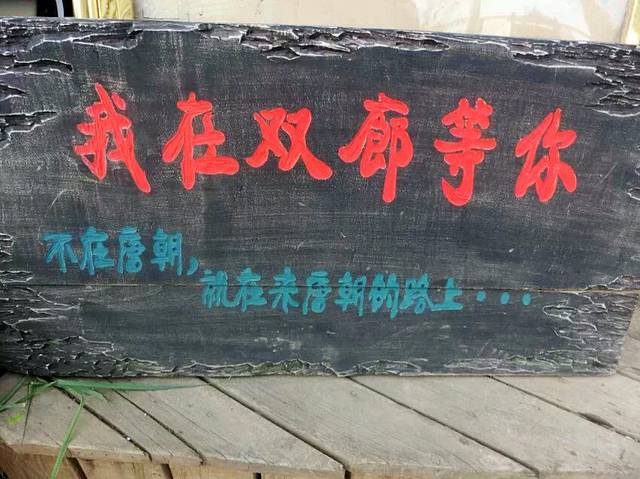 我在双廊等你
不在唐朝，
就在来唐朝的路上···